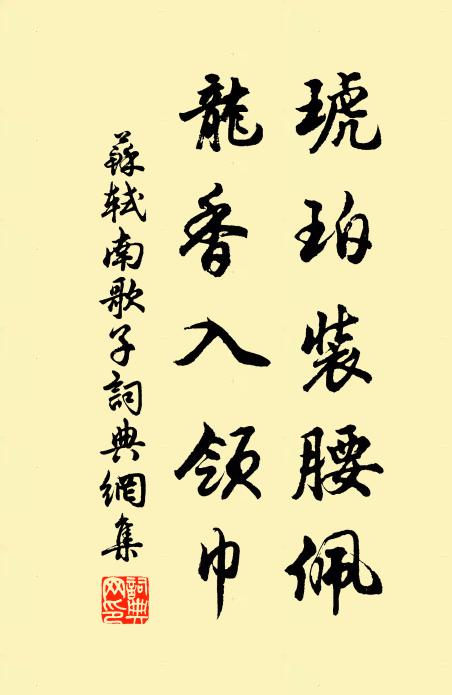 琥珀裝腰佩
龍香入領巾
蘇軾南歌子詞典網集
詞典網印